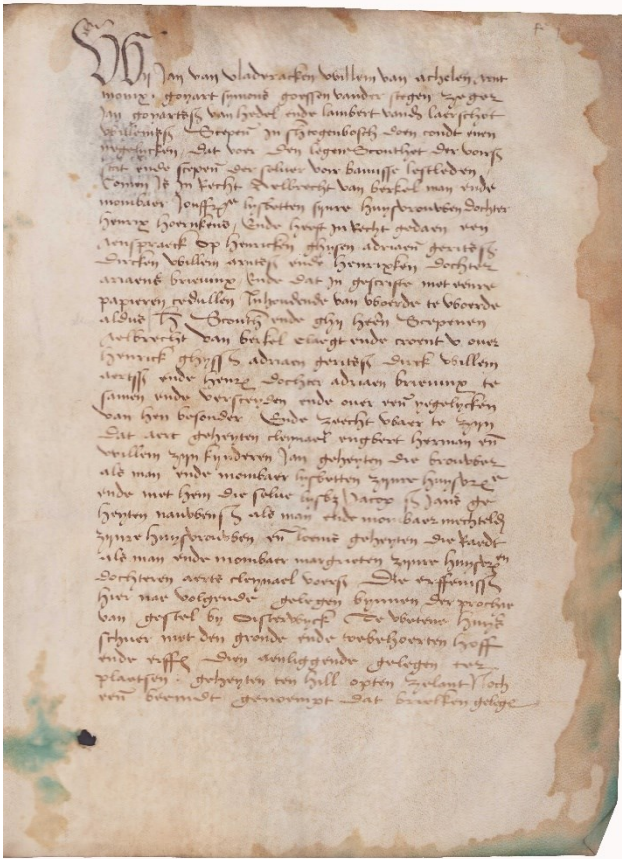 Wij Jan van vladeracken willem van achelen, rut
monix, goyart symons goessen vander stegen zeger
Jan goyartss van hedel ende lambert vanden laerschot
willemss Scepen In shertogenbosch doen condt eenen
yegelycken, dat voer den Scouthet der vors
stat ende scepen der selver voer bamisse lestleden
comen Is In Recht Aelbrecht van berkel man ende
mombaer Jouffr lysbetten synre huysvrouwen dochter
henrix hoernkens, Ende heeft In Recht gedaen een
aenspraeck Op henricken ghysen adriaen geritss
Dircken willem artss ende henrixken dochter
ariaens brieninx, Ende dat In gescrifte met eenre
papieren cedullen Inhoudende van woerde te woerde
aldus, Scouth ende ghy heren Scepenen
Aelbrecht van berkel claegt ende croent v over
henrick ghyss adriaen geritss Dirck willem
aertss ende henrx dochter adriaen brieninx te
samen ende verscyden ende over een yegelycken
van hen besonder, Ende zeecht waer te zyn
dat aert geheyten cleynael engbert herman en
willem zyn kynderen Jan geheyten die brouwer
als man ende mombaer lysbetten zynre huysvre
ende met hem die selve lysbz Jacop Jans ge
heyten nauwenss als man ende mombaer mechteld
zynre huysvrouwen en loeus geheyten die Raedt
als man ende mombaer margrieten zynre huysvren
dochteren aerts cleynael voers Die erffenisse
hier nae volgende gelegen bynnen der prochie
van gestel by Oisterwyck Te wetene huys
schuer met den gronde ende toebehoerten hoff
ende erffs dien aenliggende gelegen ter
plaetsen geheyten ten hill opten zelant Noch
een beemdt genoempt dat brueken gelege